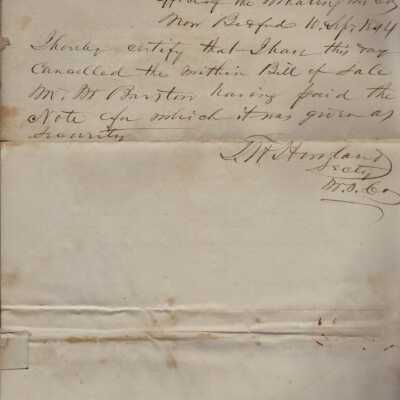 Office of the Whaling Ins Co
New Bedford 10. Apr. 1844
I hereby certify that I have this day
Cancelled the within Bill of Sale
Mr. M Barston having paid the
Note for which it was given as
Security
Secty